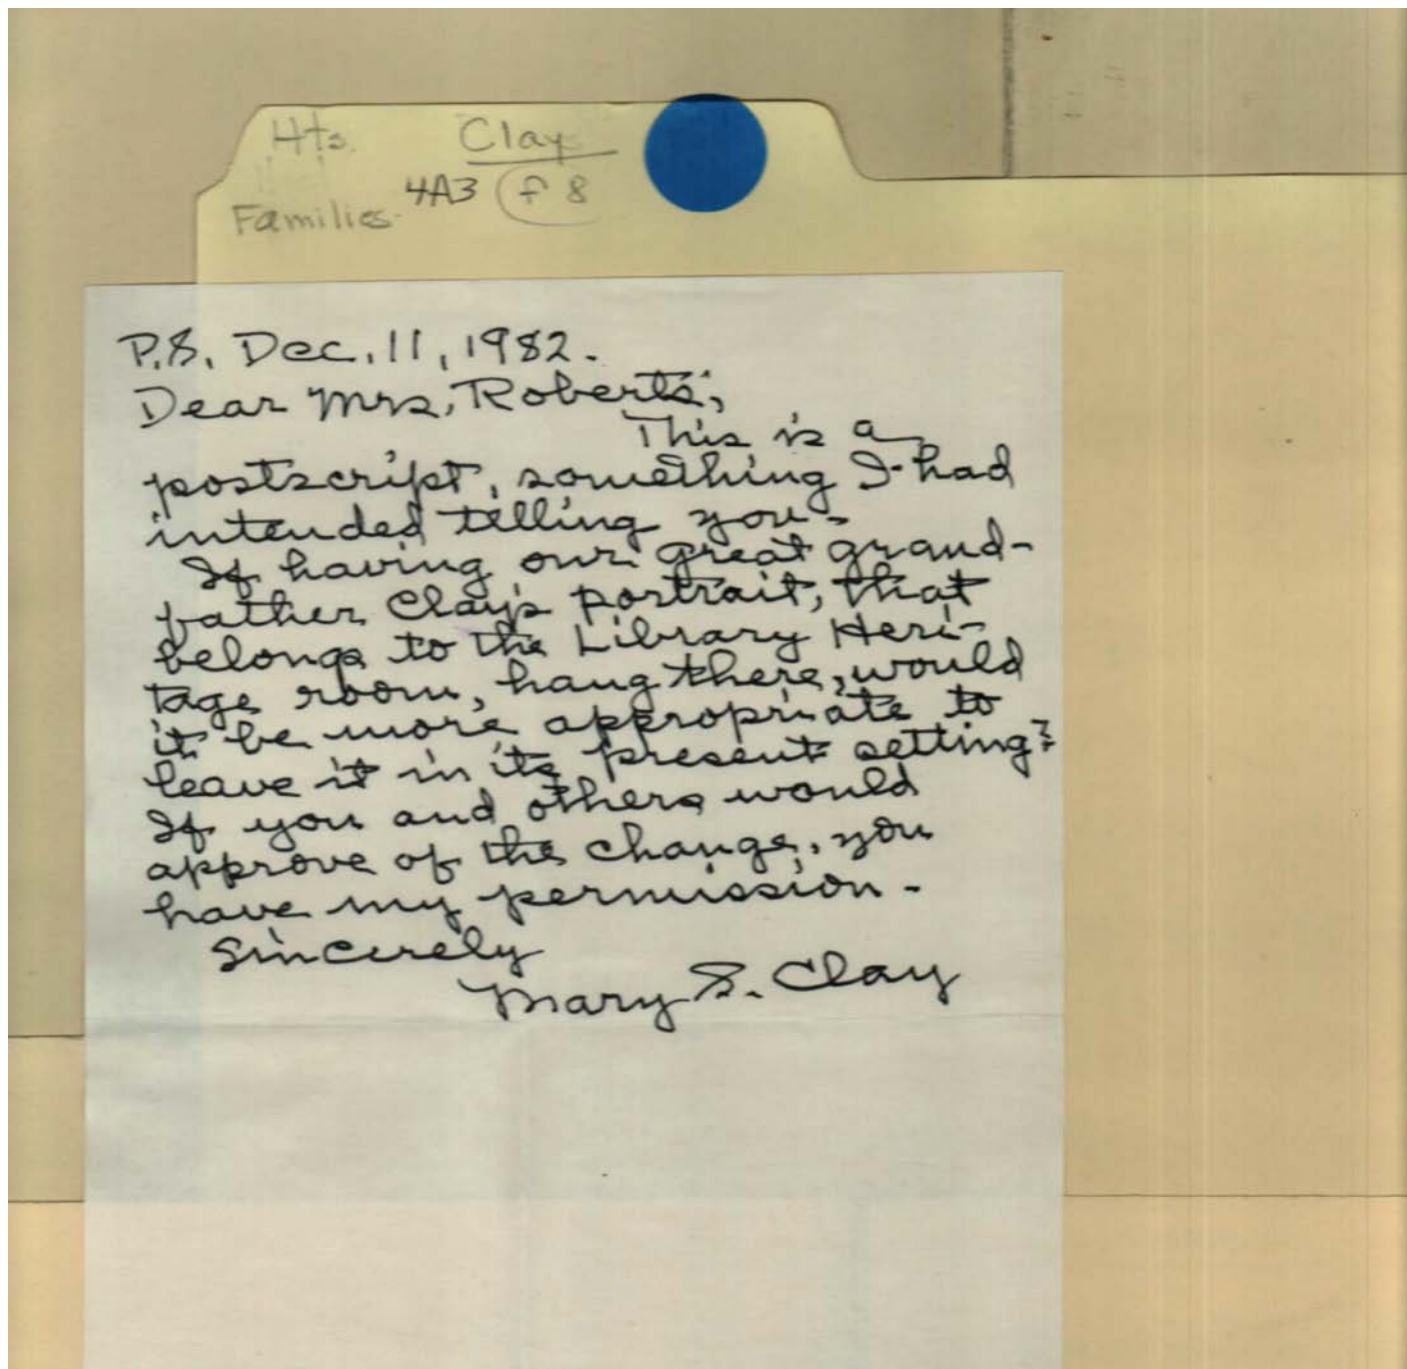 Hts. Clay
4A3 f 8
Families
P.S. Dec. 11, 1982.
Dear Mrs. Roberts;
This is a
postscript, something I had
intended telling you-
If having our great grand-
father Clay's portrait, that
belongs to the Library Heri-
tage room, hang there, would
it be more appropriate to
leave it in its present setting?
If you and others would
approve of the change, you
have my permission-
Sincerely
Mary S. Clay